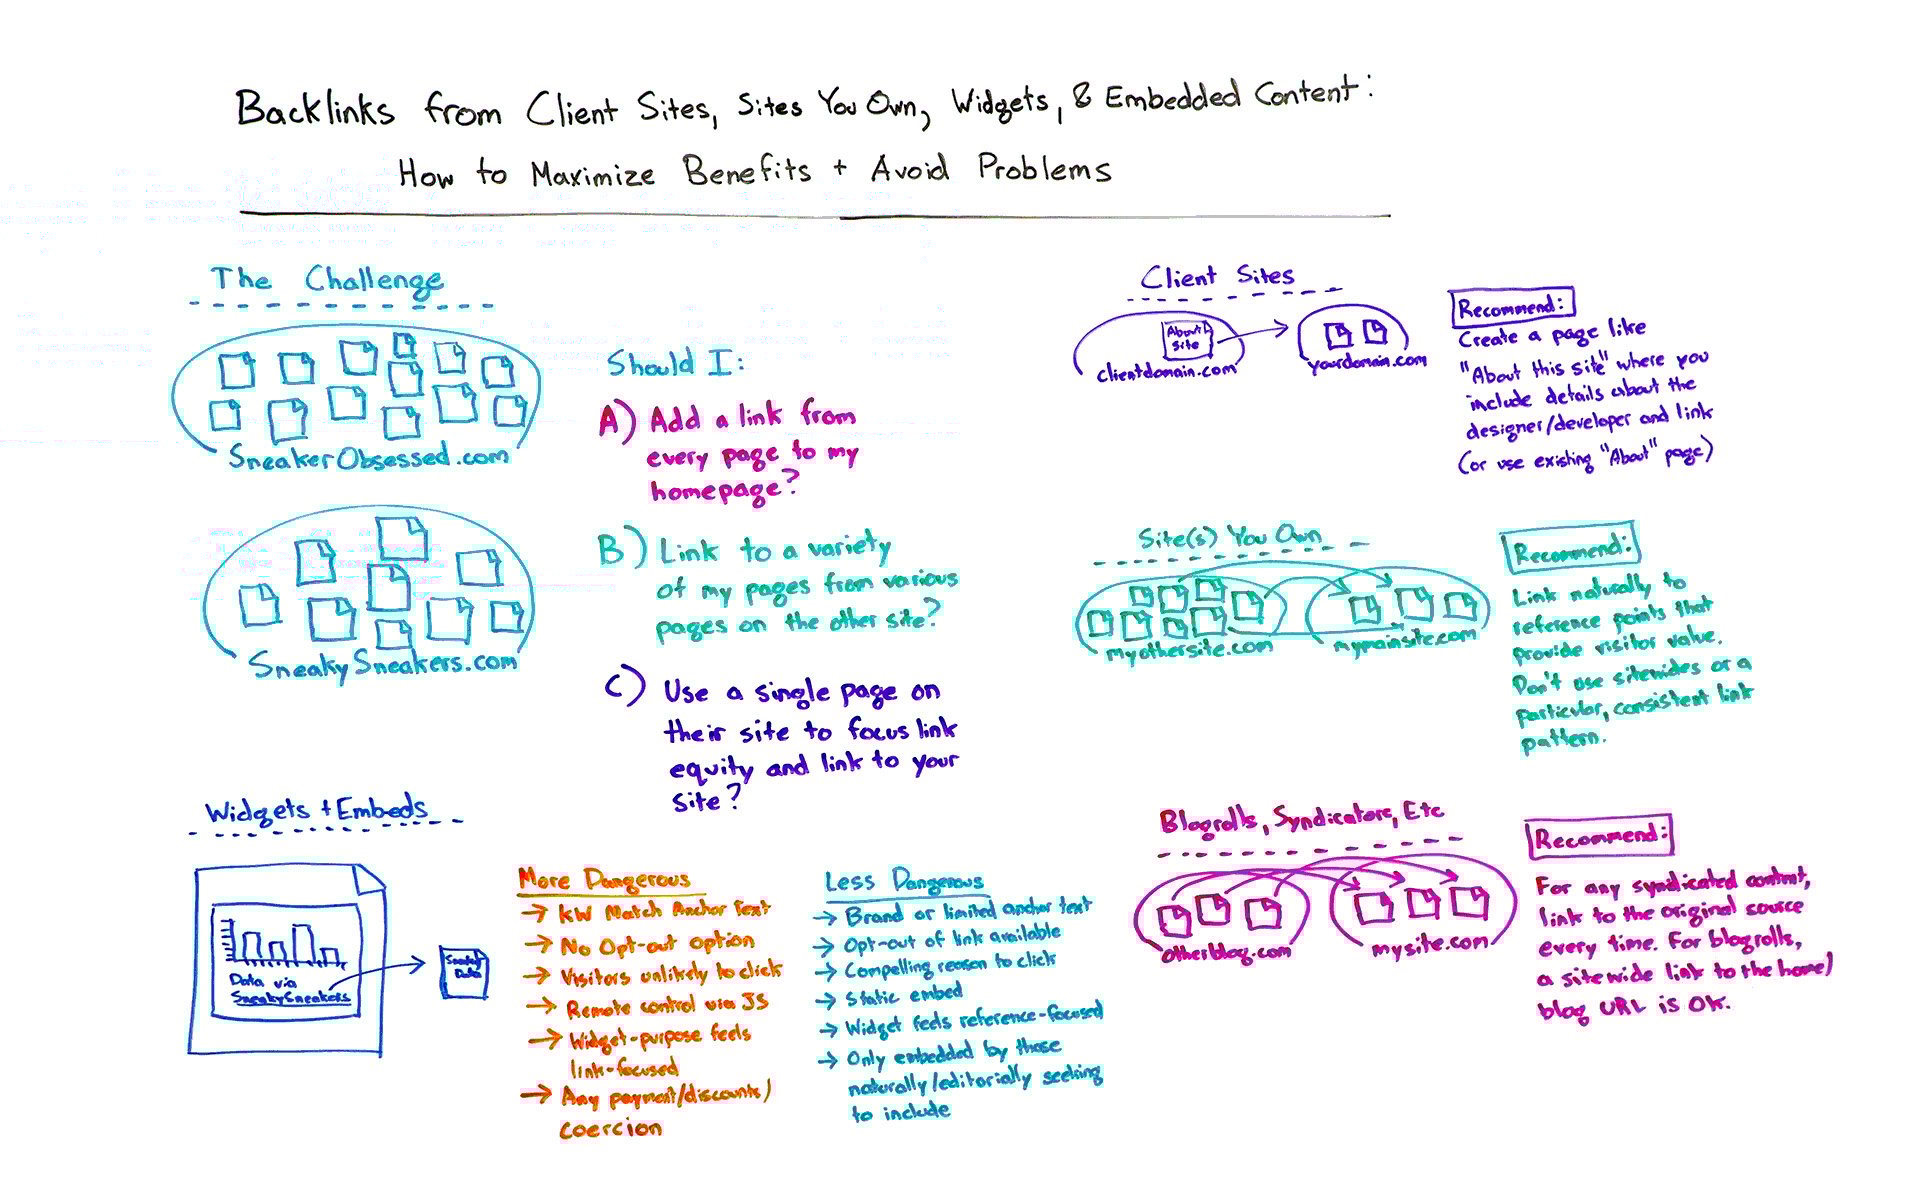 Backlinks from Client Sites, Sites You Own, Widgets, & Embedded Content:
How to Maximize Benefits + Avoid Problems
The Challenge
SneakerObsessed.com
SneakySneakers.com
Should I:
A) Add a link from
every page to my
homepage?
B) Link to a variety
of my pages from various
pages on the other site?
C) Use a single page on
their site to focus link
equity and link to your
site?
Widgets + Embeds
Data via
SneakySneakers
Data
More Dangerous
→ KW Match Anchor Text
→ No Opt-out option
→ Visitors unlikely to click
→ Remote control via JS
→ Widget-purpose feels
link-focused
→ Any payment/discounts/
coercion
Less Dangerous
→ Brand or limited anchor text
→ Opt-out of link available
→ Compelling reason to click
→ Static embed
→ Widget feels reference-focused
→ Only embedded by those
naturally/editorially seeking
to include
Client Sites
About
Site
clientdomain.com
yourdomain.com
Recommend:
Create a page like
"About this site" where you
include details about the
designer/developer and link
(or use existing "About" page)
Site(s) You Own
myothersite.com
mymainsite.com
Recommend:
Link naturally to
reference points that
provide visitor value.
Don't use sitewides or a
particular, consistent link
pattern.
Blogrolls, Syndicators, Etc
otherblog.com
mysite.com
Recommend:
For any syndicated content,
link to the original source
every time. For blogrolls,
a sitewide link to the home/
blog URL is OK.